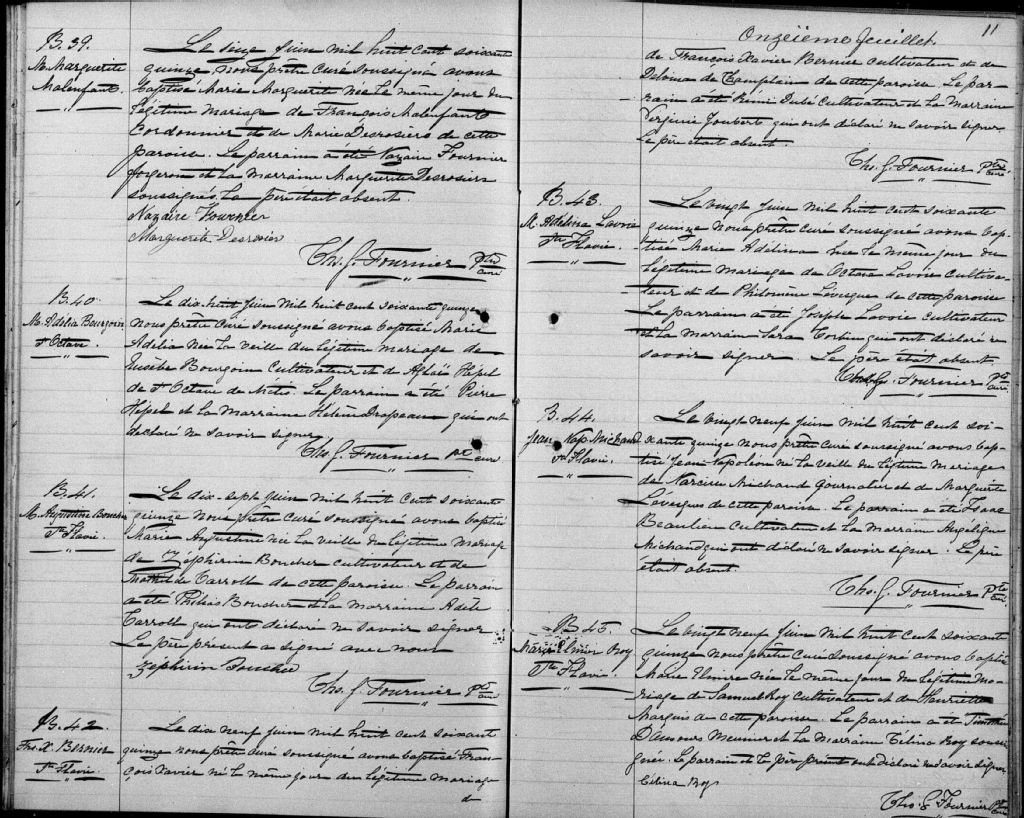 B. 39.
M. Marguerite
Malenfant.
Le seize Juin mil huit cent soixante
quinze nous prêtre curé soussigné avons
baptisé Marie Marguerite née le même jour du
légitime mariage de François Malenfant
Cordonnier et de Marie Desrosiers de cette
paroisse. Le parrain a été Nazaire Fournier
forgeron et la marraine Marguerite Desrosiers
soussignés. Le père était absent.
Nazaire Fournier
Marguerite Desrosier
Ths. J. Fournier Ptre curé
B. 40
M. Adélia Bourgoin
St Octave.
Le dix huit Juin mil huit cent soixante quinze
nous prêtre curé soussigné avons baptisé Marie
Adélia née la veille du légitime mariage de
Eusèbe Bourgoin Cultivateur et de Aglaée Hépel
de St Octave de Métis. Le parrain a été Pierre
Hépel et la marraine Hélène Drapeau qui ont
déclaré ne savoir signer
Ths. J. Fournier Ptre curé
B. 41.
M. Augustine Boucher
Ste Flavie.
Le dix-sept Juin mil huit cent soixante
quinze nous prêtre curé soussigné avons baptisé
Marie Augustine née la veille du légitime mariage
de Zéphirin Boucher cultivateur et de
Mathilde Carroll de cette paroisse. Le parrain
a été Philias Boucher et la marraine Adèle
Carroll qui ont déclaré ne savoir signer
Le père présent a signé avec nous
Zephirin Boucher
Ths. J. Fournier Ptre curé
B. 42.
Frs. X. Bernier
Ste Flavie.
Le dix neuf Juin mil huit cent soixante
quinze nous prêtre curé soussigné avons baptisé Fran-
çois Xavier né le même jour du légitime mariage
de
Onzeième feuillet. 11
de François Xavier Bernier cultivateur et de
de Champlain de cette paroisse. Le par-
rain a été Rémi Dubé Cultivateur et la Marraine
Virginie Joubert qui ont déclaré ne savoir signer
Le père était absent
Ths. J. Fournier Ptre curé
B. 43.
M. Adélina Lavoie
Ste Flavie.
Le vingt Juin mil huit cent soixante
quinze nous prêtre curé soussigné avons bap-
tisé Marie Adélina née le même jour du
légitime mariage de Octave Lavoie Cultiva-
teur et de Philomène Lévesque de cette paroisse
Le parrain a été Joseph Lavoie cultivateur
et la marraine Sara qui ont déclaré ne
savoir signer. Le père était absent
Ths. J. Fournier Ptre curé
B. 44.
Jean Nap. Michaud
Ste Flavie.
Le vingt neuf Juin mil huit cent soi-
xante quinze nous prêtre curé soussigné avons bap-
tisé Jean Napoléon né la veille du légitime mariage
de Narcisse Michaud Journalier et de Marguerite
Lévesque de cette paroisse. Le parrain a été Isaac
Beaulieu Cultivateur et la marraine Angélique
Michaud qui ont déclaré ne savoir signer. Le père
était absent.
Ths. J. Fournier Ptre curé
B. 45.
Marie Elmire Roy
Ste Flavie.
Le vingt neuf Juin mil huit cent soixante
quinze nous prêtre curé soussigné avons baptisé
Marie Elmire née le même jour du légitime ma-
riage de Samuel Roy Cultivateur et de Henriette
Marquis de cette paroisse. Le parrain a été Timothée
D'amours Meunier et la marraine Célina Roy soussi-
gnée. Le parrain et le père présents ont déclaré ne savoir signer
Célina Roy
Ths. J. Fournier Ptre curé